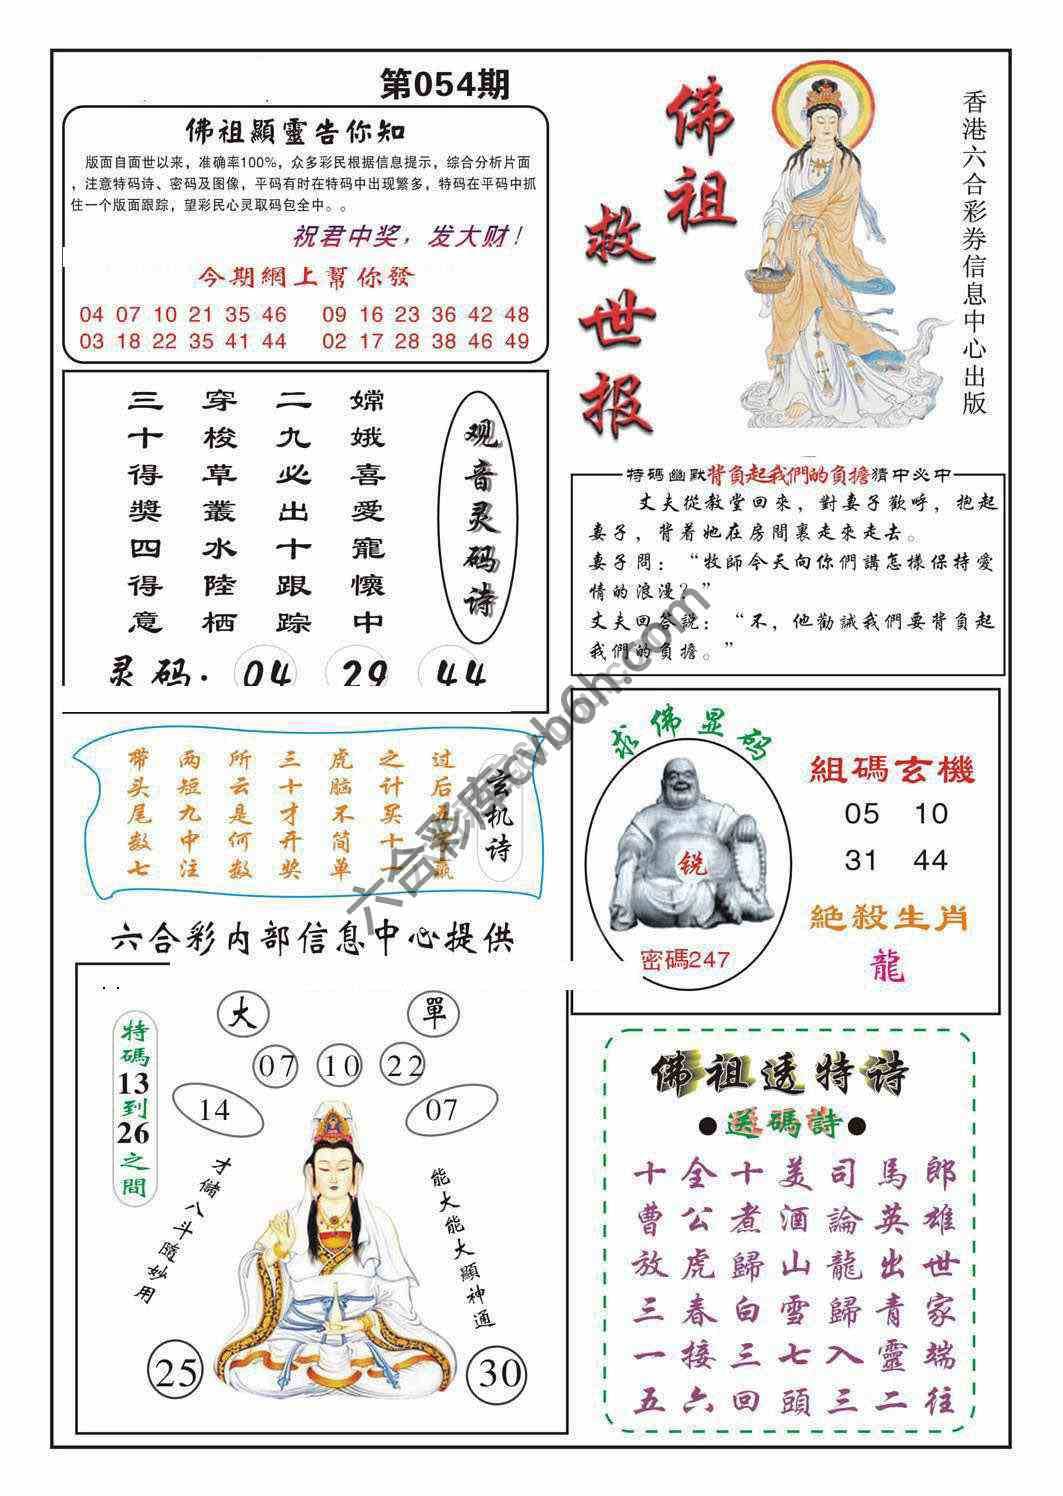 第054期
佛祖顯靈告你知
版面自面世以来，准确率100%，众多彩民根据信息提示，综合分析片面
，注意特码诗、密码及图像，平码有时在特码中出现繁多，特码在平码中抓
住一个版面跟踪，望彩民心灵取码包全中。。
祝君中奖，发大财！
今期網上幫你發
04 07 10 21 35 46 09 16 23 36 42 48
03 18 22 35 41 44 02 17 28 38 46 49
佛祖
救世报
香港六合彩券信息中心出版
观音灵码诗
嫦娥喜愛寵懷中
二九必出十跟踪
穿梭草叢水陸栖
三十得獎四得意
灵码：04 29 44
特碼幽默背負起我們的負擔猜中必中
丈夫從教堂回來，對妻子歡呼，抱起
妻子，背着她在房間裏走來走去。
妻子問：“牧師今天向你們講怎樣保持愛
情的浪漫？”
丈夫回答説：“不，他勸誡我們要背負起
我們的負擔。”
玄机诗
过后五字赢
之计买十一
虎脑不简单
三十才开奖
所云是何数
两短九中注
带头尾数七
求佛显码
锐
密碼247
組碼玄機
05 10
31 44
絕殺生肖
龍
六合彩内部信息中心提供
大
單
特碼13到26之間
07 10 22
14
07
才儲八斗隨妙用
能大能大顯神通
25
30
佛祖透特诗
●送碼詩●
十全十美司馬郎
曹公煮酒論英雄
放虎歸山龍出世
三春白雪歸青家
一接三七入靈端
五六回頭三二往
六合彩库cvboh.com